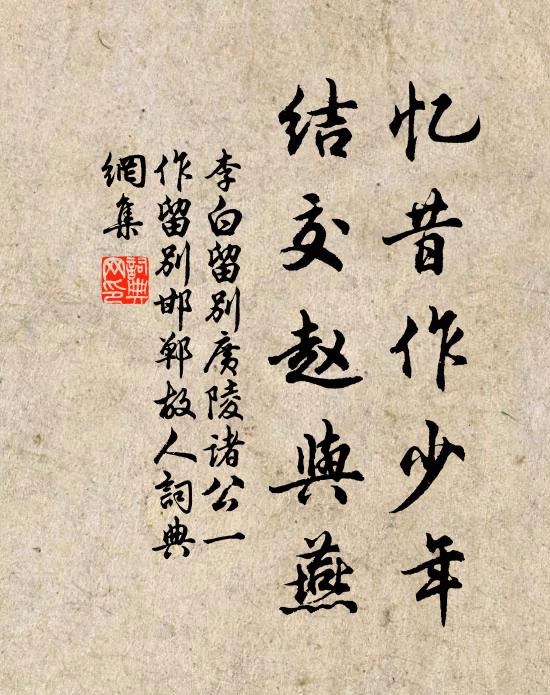 忆昔作少年
结交赵與燕
李白留别廣陵诸公一
作留别邯郸故人詞典
網集
詞典网印